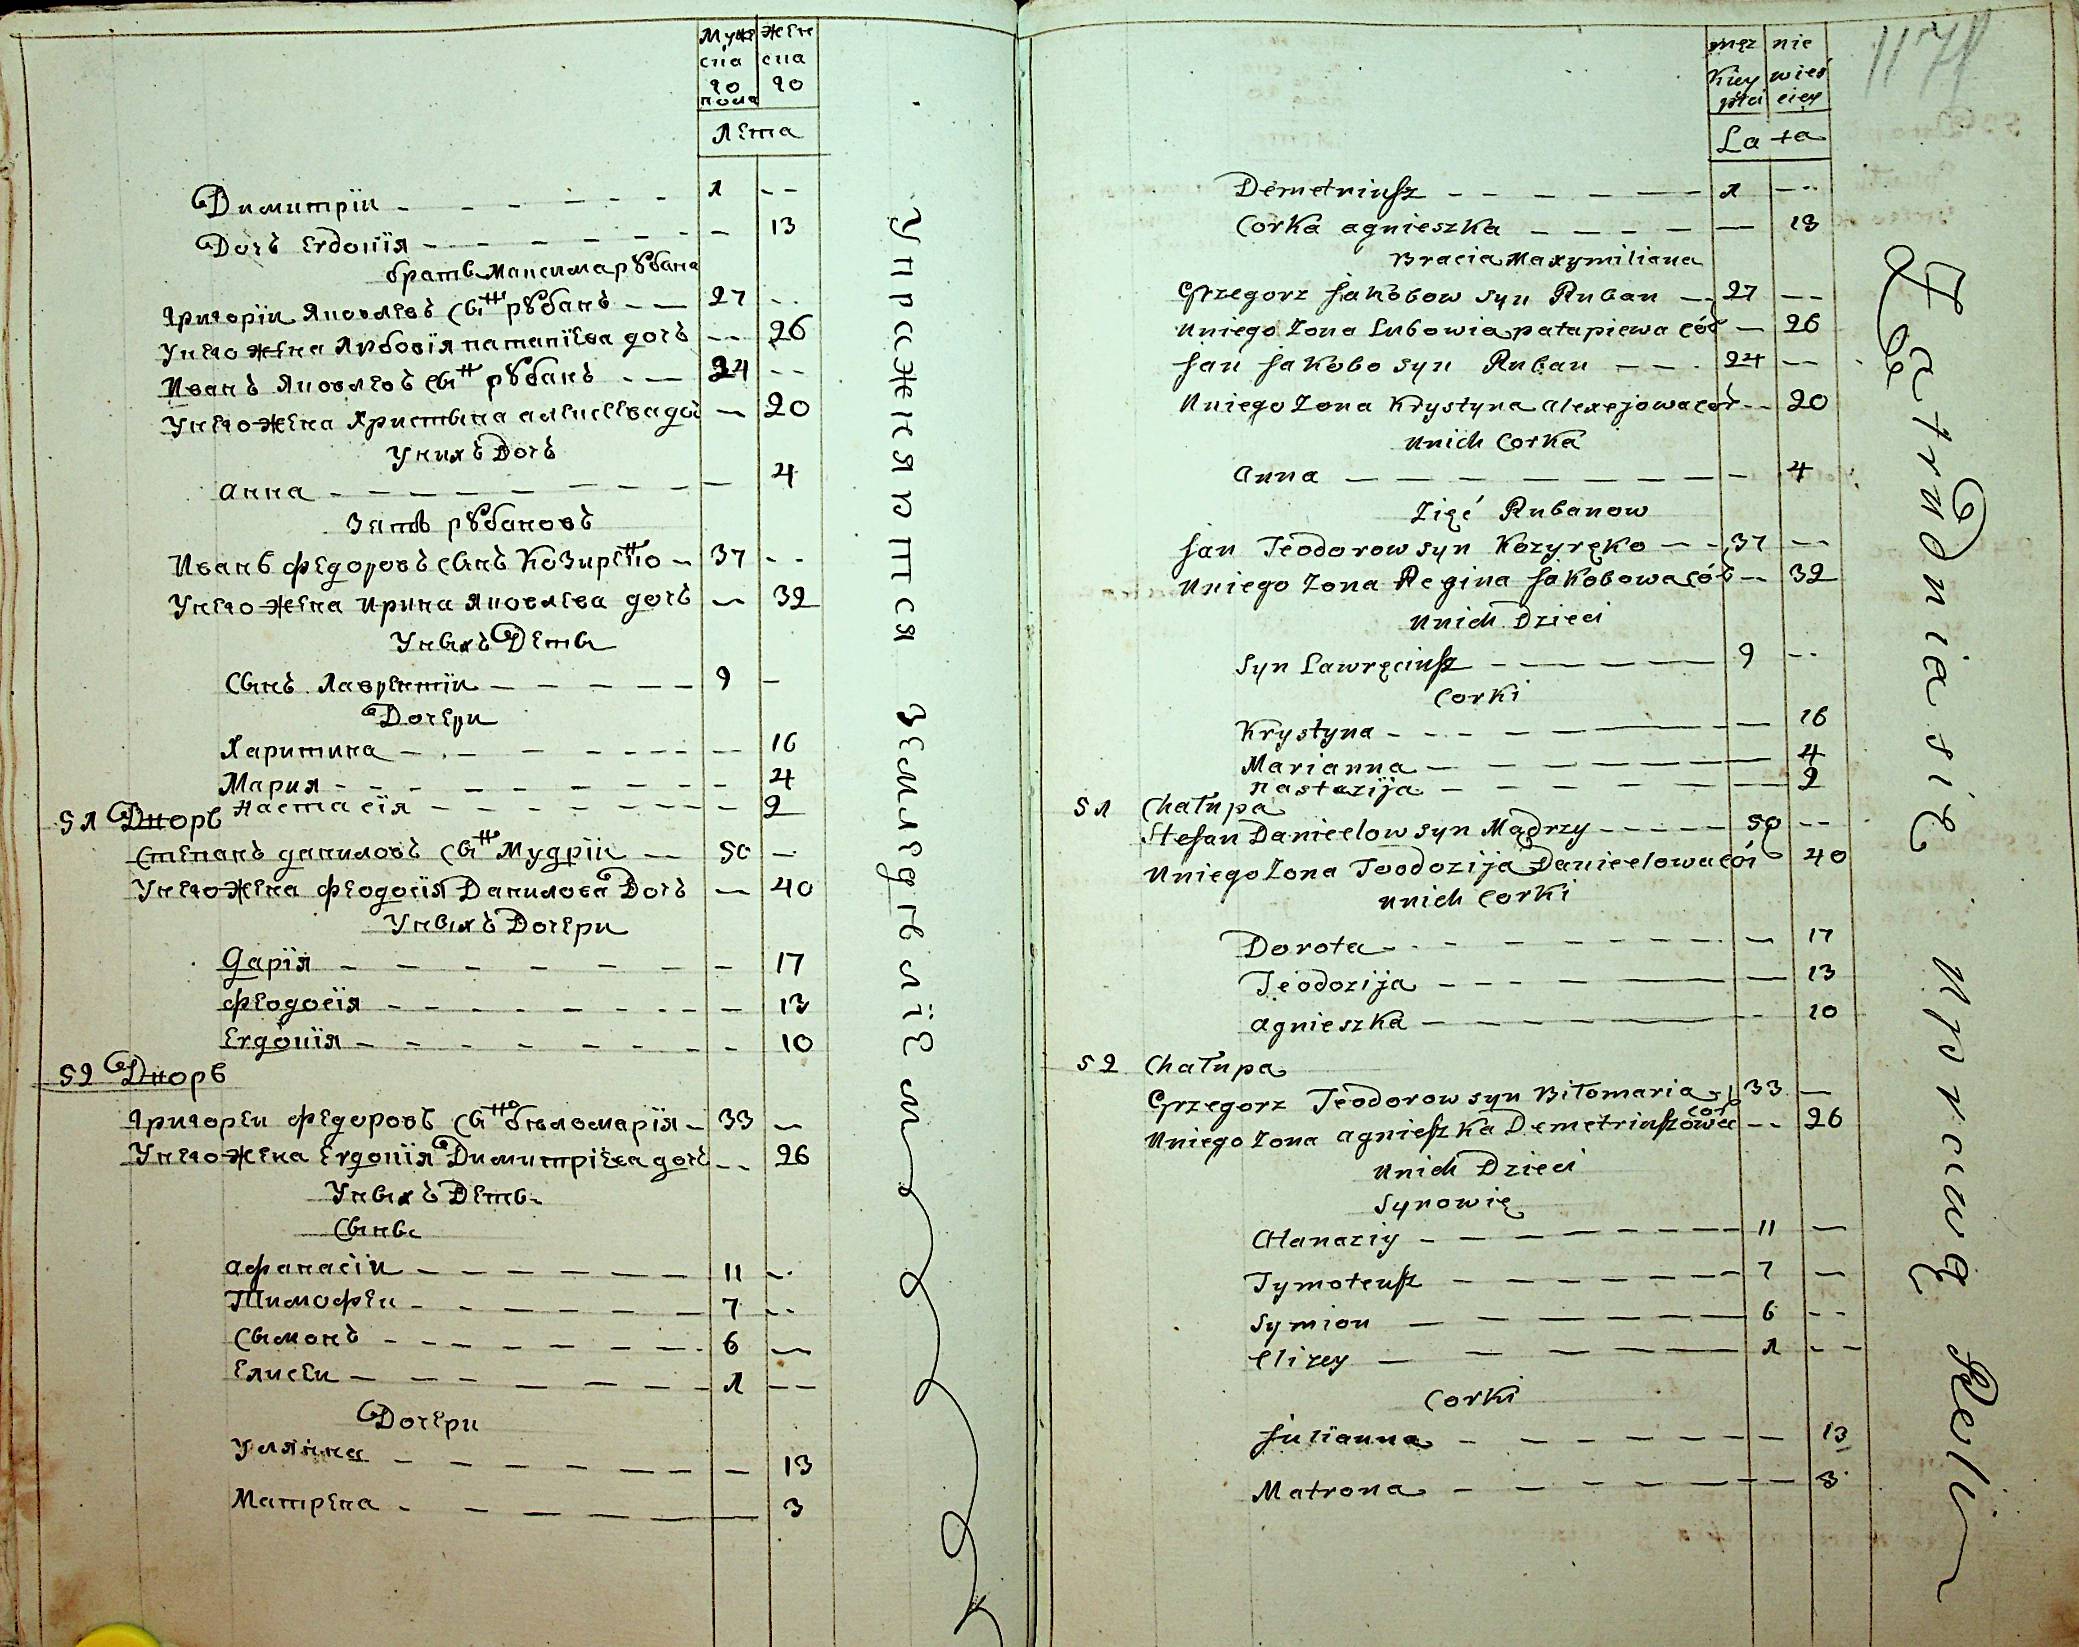 Муже жен
ска ска
го го
пола
Лета
Димитрїи - - - - - - 1 --
Дочь Евдокїя - - - - - - 13
братья Максима рубана
Григорїи Яковлевъ сынъ рубанъ - - 27 --
У него жена Любовїя патапїева дочь -- 26
Иванъ Яковлевъ сынъ рубанъ - - 24 --
У него жена Христина алексеева доч - 20
У нихъ Дочь
анна - - - - - - - - 4
Зять рубановъ
Иванъ федоровъ сынъ Козиренко - 37 --
У него жена ирина Яковлева дочь - 32
У ныхъ Деты
Сынъ Лаврентїи - - - - - 9 -
Дочери
Харитина - - - - - - - 16
Мария - - - - - - - - 4
Настасїя - - - - - - - 2
51 Дворъ
Степанъ даниловъ сынъ Мудрїи - 50 -
У него жена феодосїя Данилова Дочь - 40
У ныхъ Дочери
Дарїя - - - - - - - 17
феодосїя - - - - - - - 13
Евдокїя - - - - - - - - 10
52 Дворъ
Григореи федоровъ сынъ беломарїя - 33 -
У него жена Евдокїя Димитрїева дочь -- 26
У ныхъ Деты
Сыны
афанасїи - - - - - - 11 --
Тимофеи - - - - - - 7 --
Сымонъ - - - - - - 6 -
Елисеи - - - - - - 1 --
Дочери
Улянна - - - - - - - 13
Матрена - - - - - 3
Упражняются земледѣлїем
męz nie
Kiey wieś
płci ciey
La ta
Demetriusz - - - - - - 1 --
Corka agnieszka - - - - - - 13
Bracia Maxymiliana
Grzegorz Jakobow syn Ruban - - 27 --
Uniego Zona Lubowia patapiewa cór - 26
Jan Jakobo syn Ruban - - - 24 --
Uniego Zona Krystyna alexejowa cór -- 20
Unich Corka
Anna - - - - - - - - - 4
Zięć Rubanow
Jan Teodorow syn Kozyręko - - 37 --
Uniego Zona Regina Jakobowa cór -- 32
Unich Dzieci
Syn Lawręciusz - - - - - 9 --
Corki
Krystyna - - - - - - - 16
Marianna - - - - - - - 4
Nastazija - - - - - - - 2
51 Chałupa
Stefan Danielow syn Mądrzy - - - - - 50 --
Uniego Zona Teodozija Danielowa cór 40
unich Corki
Dorota - - - - - - - - 17
Teodozija - - - - - - - 13
agnieszka - - - - - - - 10
52 Chałupa
Grzegorz Teodorow syn Biłomaria - 33 -
Uniego Zona agnieszka Demetriuszowa cór -- 26
Unich Dzieci
Synowię
Atanaziy - - - - - - - 11 -
Tymoteusz - - - - - - 7 -
Symion - - - - - - 6 --
Elizey - - - - - - 1 --
Corki
Julianna - - - - - - - 13
Matrona - - - - - - - 3
Zatrudnia się Uprawą Roli